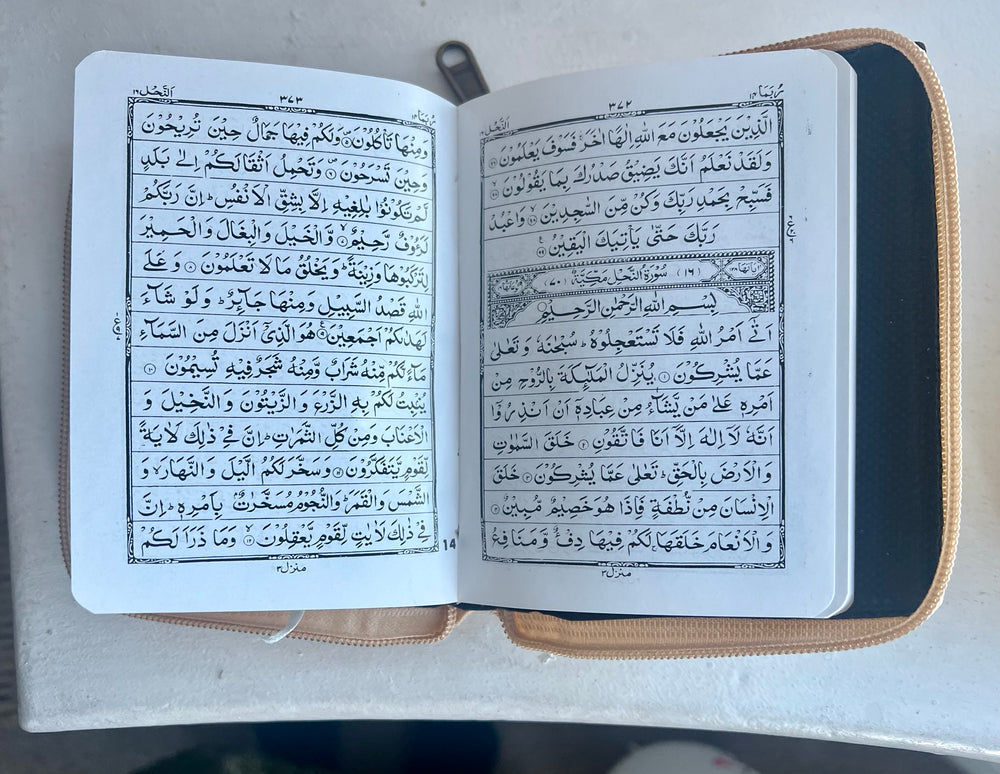 رُبَمَا ١٤
٣٧٢
اَلنَّحْل ١٦
الَّذِيْنَ يَجْعَلُوْنَ مَعَ اللّٰهِ اِلٰهًا اٰخَرَ ۚ فَسَوْفَ يَعْلَمُوْنَ ۝٩٦
وَلَقَدْ نَعْلَمُ اَنَّكَ يَضِيْقُ صَدْرُكَ بِمَا يَقُوْلُوْنَ ۝٩٧
فَسَبِّحْ بِحَمْدِ رَبِّكَ وَكُنْ مِّنَ السّٰجِدِيْنَ ۝٩٨ وَاعْبُدْ
رَبَّكَ حَتّٰى يَاْتِيَكَ الْيَقِيْنُ ۝٩٩
(١٦) سُوْرَةُ النَّحْلِ مَكِّيَّةٌ (٧٠)
بِسْمِ اللّٰهِ الرَّحْمٰنِ الرَّحِيْمِ
اَتٰۤى اَمْرُ اللّٰهِ فَلَا تَسْتَعْجِلُوْهُ ؕ سُبْحٰنَهٗ وَتَعٰلٰى
عَمَّا يُشْرِكُوْنَ ۝١ يُنَزِّلُ الْمَلٰٓئِكَةَ بِالرُّوْحِ مِنْ
اَمْرِهٖ عَلٰى مَنْ يَّشَآءُ مِنْ عِبَادِهٖۤ اَنْ اَنْذِرُوْۤا
اَنَّهٗ لَاۤ اِلٰهَ اِلَّاۤ اَنَا فَاتَّقُوْنِ ۝٢ خَلَقَ السَّمٰوٰتِ
وَالْاَرْضَ بِالْحَقِّ ؕ تَعٰلٰى عَمَّا يُشْرِكُوْنَ ۝٣ خَلَقَ
الْاِنْسَانَ مِنْ نُّطْفَةٍ فَاِذَا هُوَ خَصِيْمٌ مُّبِيْنٌ ۝٤
وَالْاَنْعَامَ خَلَقَهَا ۚ لَكُمْ فِيْهَا دِفْءٌ وَّمَنَافِعُ
منزل ٣
رُبَمَا ١٤
٣٧٣
اَلنَّحْل ١٦
وَمِنْهَا تَاْكُلُوْنَ ۝٥ وَلَكُمْ فِيْهَا جَمَالٌ حِيْنَ تُرِيْحُوْنَ
وَحِيْنَ تَسْرَحُوْنَ ۝٦ وَتَحْمِلُ اَثْقَالَكُمْ اِلٰى بَلَدٍ
لَّمْ تَكُوْنُوْا بٰلِغِيْهِ اِلَّا بِشِقِّ الْاَنْفُسِ ؕ اِنَّ رَبَّكُمْ
لَرَءُوْفٌ رَّحِيْمٌ ۝٧ وَّالْخَيْلَ وَالْبِغَالَ وَالْحَمِيْرَ
لِتَرْكَبُوْهَا وَزِيْنَةً ؕ وَيَخْلُقُ مَا لَا تَعْلَمُوْنَ ۝٨ وَعَلَى
اللّٰهِ قَصْدُ السَّبِيْلِ وَمِنْهَا جَآئِرٌ ؕ وَلَوْ شَآءَ
لَهَدٰىكُمْ اَجْمَعِيْنَ ۝٩ هُوَ الَّذِيْۤ اَنْزَلَ مِنَ السَّمَآءِ
مَآءً لَّكُمْ مِّنْهُ شَرَابٌ وَّمِنْهُ شَجَرٌ فِيْهِ تُسِيْمُوْنَ ۝١٠
يُنْۢبِتُ لَكُمْ بِهِ الزَّرْعَ وَالزَّيْتُوْنَ وَالنَّخِيْلَ وَ
الْاَعْنَابَ وَمِنْ كُلِّ الثَّمَرٰتِ ؕ اِنَّ فِيْ ذٰلِكَ لَاٰيَةً
لِّقَوْمٍ يَّتَفَكَّرُوْنَ ۝١١ وَسَخَّرَ لَكُمُ الَّيْلَ وَالنَّهَارَ ۙ وَ
الشَّمْسَ وَالْقَمَرَ ؕ وَالنُّجُوْمُ مُسَخَّرٰتٌۢ بِاَمْرِهٖ ؕ اِنَّ
فِيْ ذٰلِكَ لَاٰيٰتٍ لِّقَوْمٍ يَّعْقِلُوْنَ ۝١٢ وَمَا ذَرَاَ لَكُمْ
منزل ٣
14